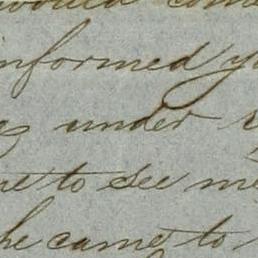 would com
informed y
under
to see me
he came to